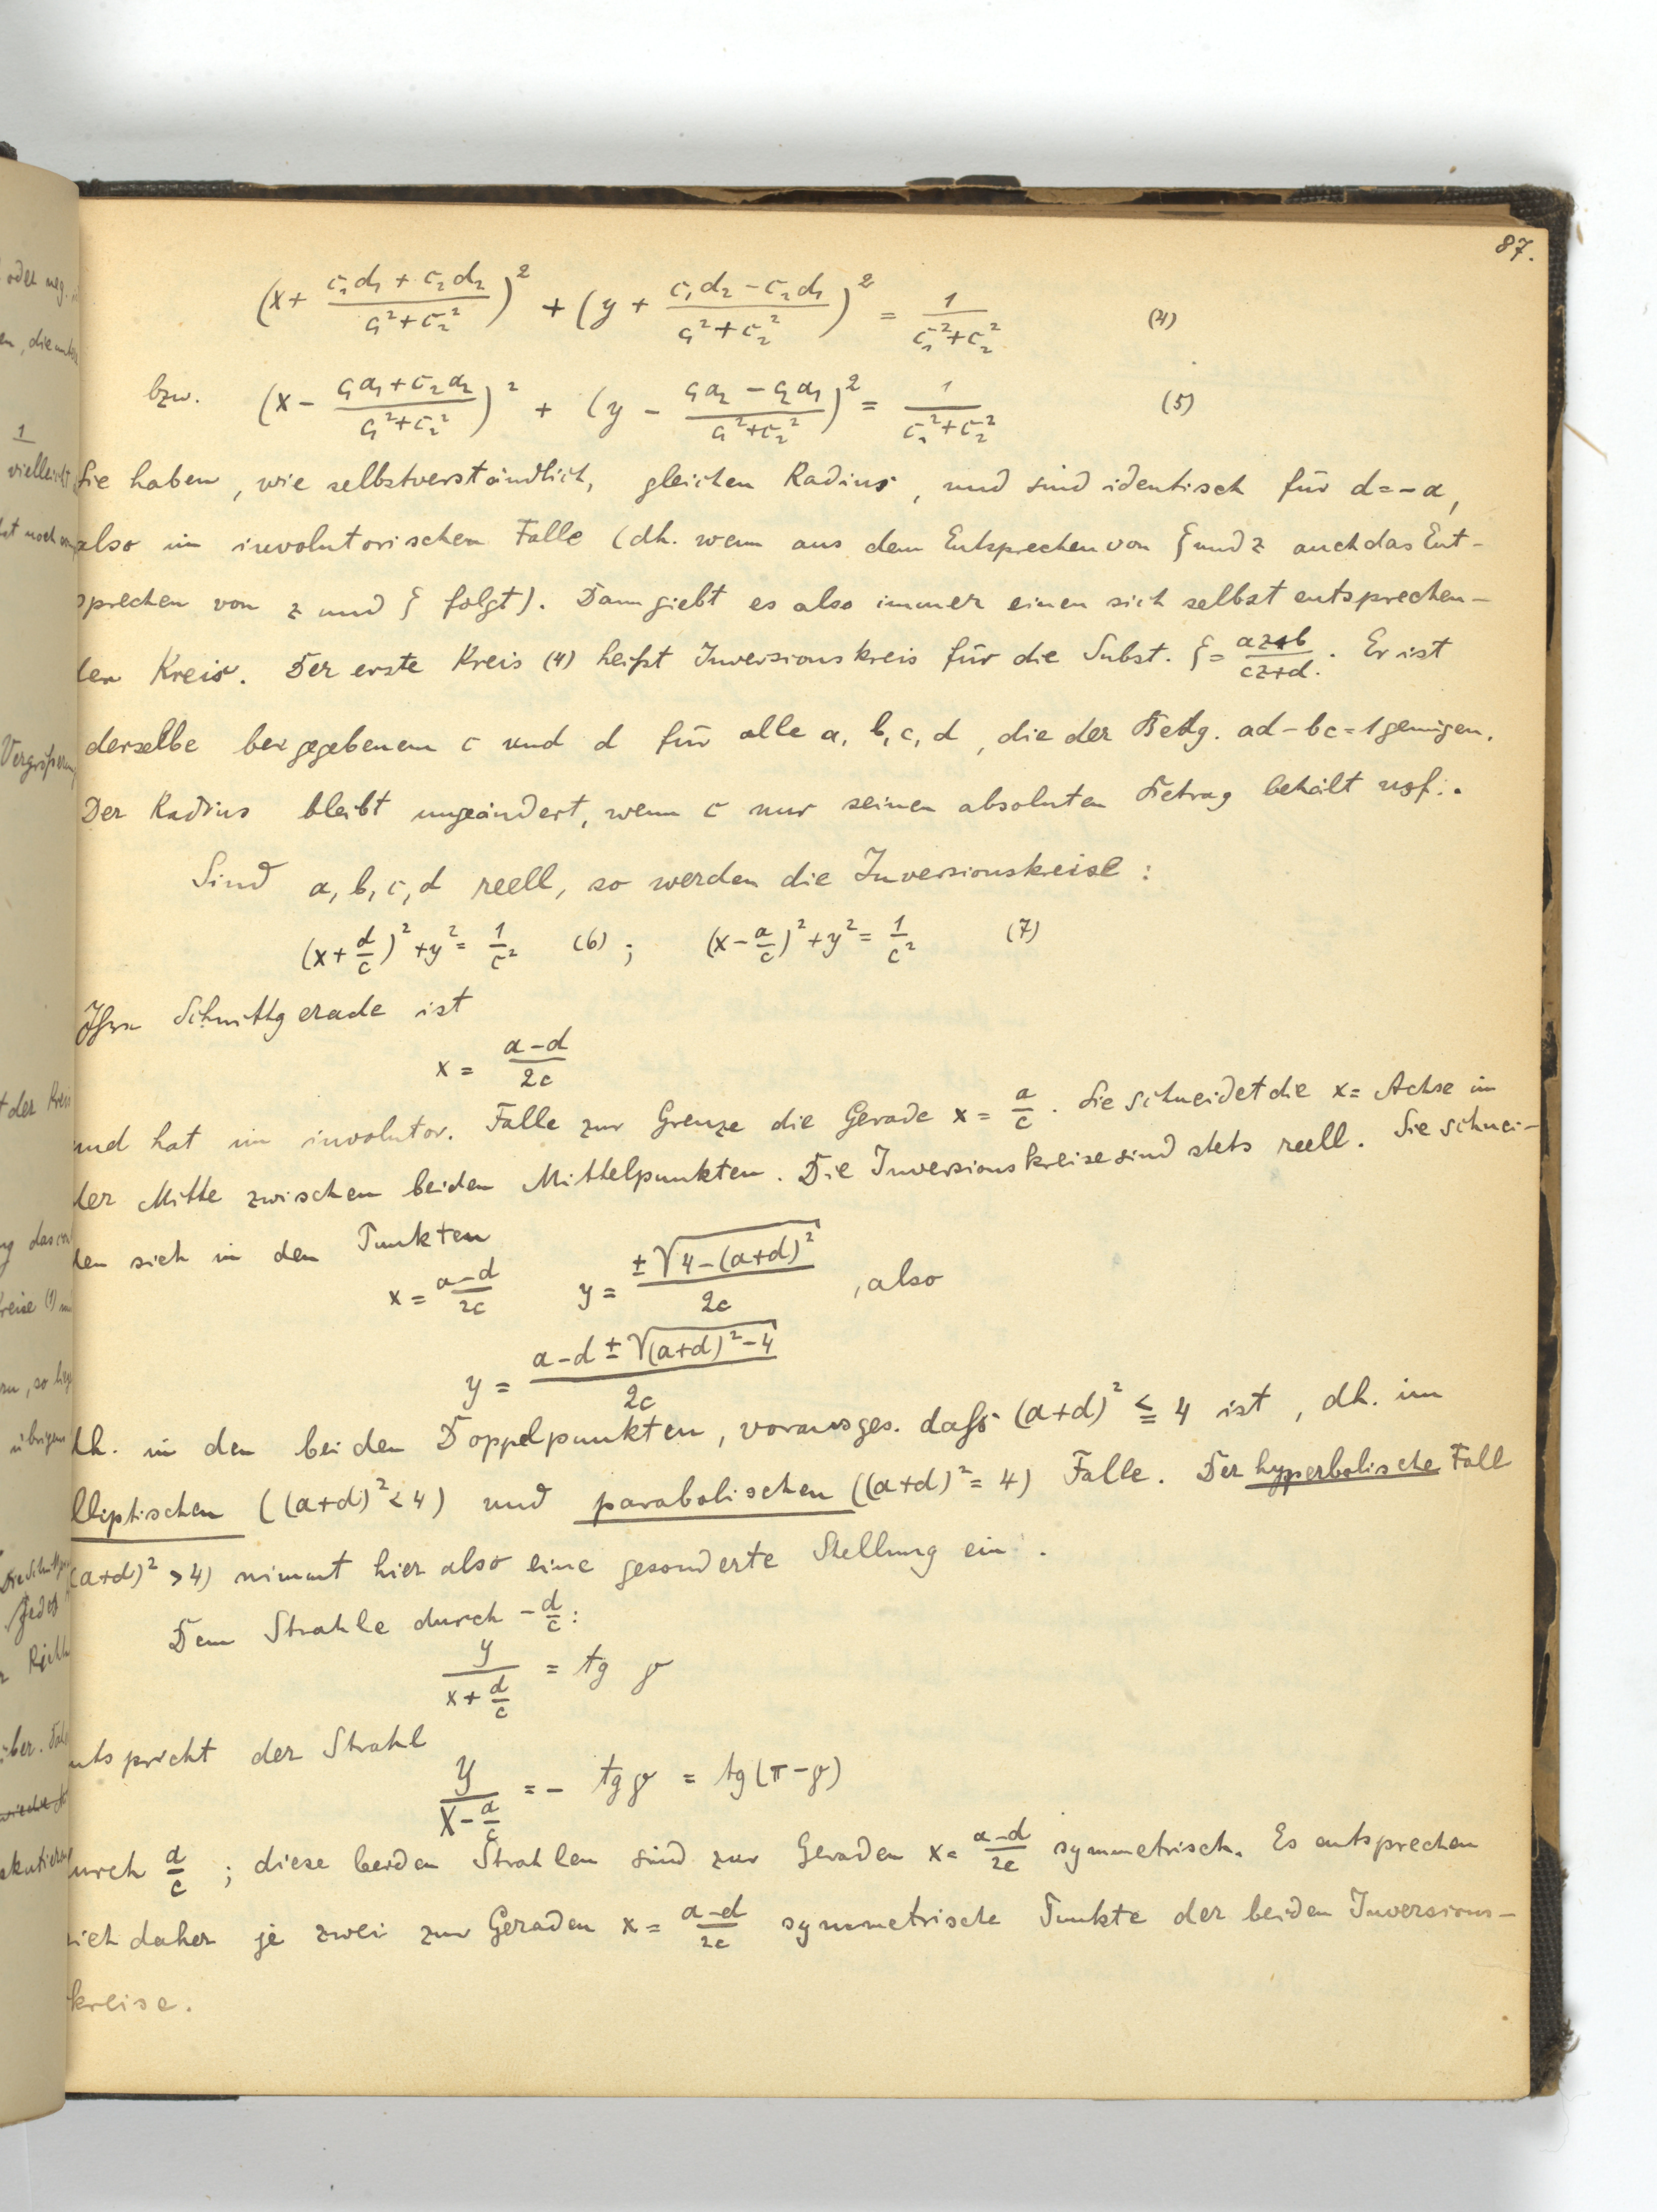 87.
(x + (c₁d₁ + c₂d₂)/(c₁² + c₂²))² + (y + (c₁d₂ − c₂d₁)/(c₁² + c₂²))² = 1/(c₁² + c₂²) (4)
bzw. (x − (c₁a₁ + c₂a₂)/(c₁² + c₂²))² + (y − (c₁a₂ − c₂a₁)/(c₁² + c₂²))² = 1/(c₁² + c₂²) (5)
Sie haben, wie selbstverständlich, gleichen Radius, und sind identisch für d = − a,
also im involutorischen Falle (dh. wenn aus dem Entsprechen von ζ und z auch das Ent-
sprechen von z und ζ folgt). Dann giebt es also immer einen sich selbst entsprechen-
den Kreis. Der erste Kreis (4) heißt Inversionskreis für die Subst. ζ = (az+b)/(cz+d). Er ist
derselbe bei gegebenem c und d für alle a, b, c, d, die der Bedg. ad − bc = 1 genügen.
Der Radius bleibt ungeändert, wenn c nur seinen absoluten Betrag behält usf.
Sind a, b, c, d reell, so werden die Inversionskreise:
(x + d/c)² + y² = 1/c² (6) ; (x − a/c)² + y² = 1/c² (7)
Ihre Schnittgerade ist
x = (a − d)/2c
und hat im involutor. Falle zur Grenze die Gerade x = a/c. Sie schneidet die x = Achse in
der Mitte zwischen beiden Mittelpunkten. Die Inversionskreise sind stets reell. Sie schnei-
den sich in den Punkten
x = (a − d)/2c y = ±√(4 − (a+d)²)/2c , also
y = (a − d ± √((a+d)² − 4))/2c
dh. in den beiden Doppelpunkten, vorausges. daß (a+d)² ≦ 4 ist, dh. im
elliptischen ((a+d)² < 4) und parabolischen ((a+d)² = 4) Falle. Der hyperbolische Fall
(a+d)² > 4) nimmt hier also eine gesonderte Stellung ein.
Dem Strahle durch − d/c:
y/(x + d/c) = tg φ
entspricht der Strahl
Y/(X − a/c) = − tg φ = tg (π − φ)
durch a/c ; diese beiden Strahlen sind zur Geraden x = (a − d)/2c symmetrisch. Es entsprechen
sich daher je zwei zur Geraden x = (a − d)/2c symmetrische Punkte der beiden Inversions-
kreise.